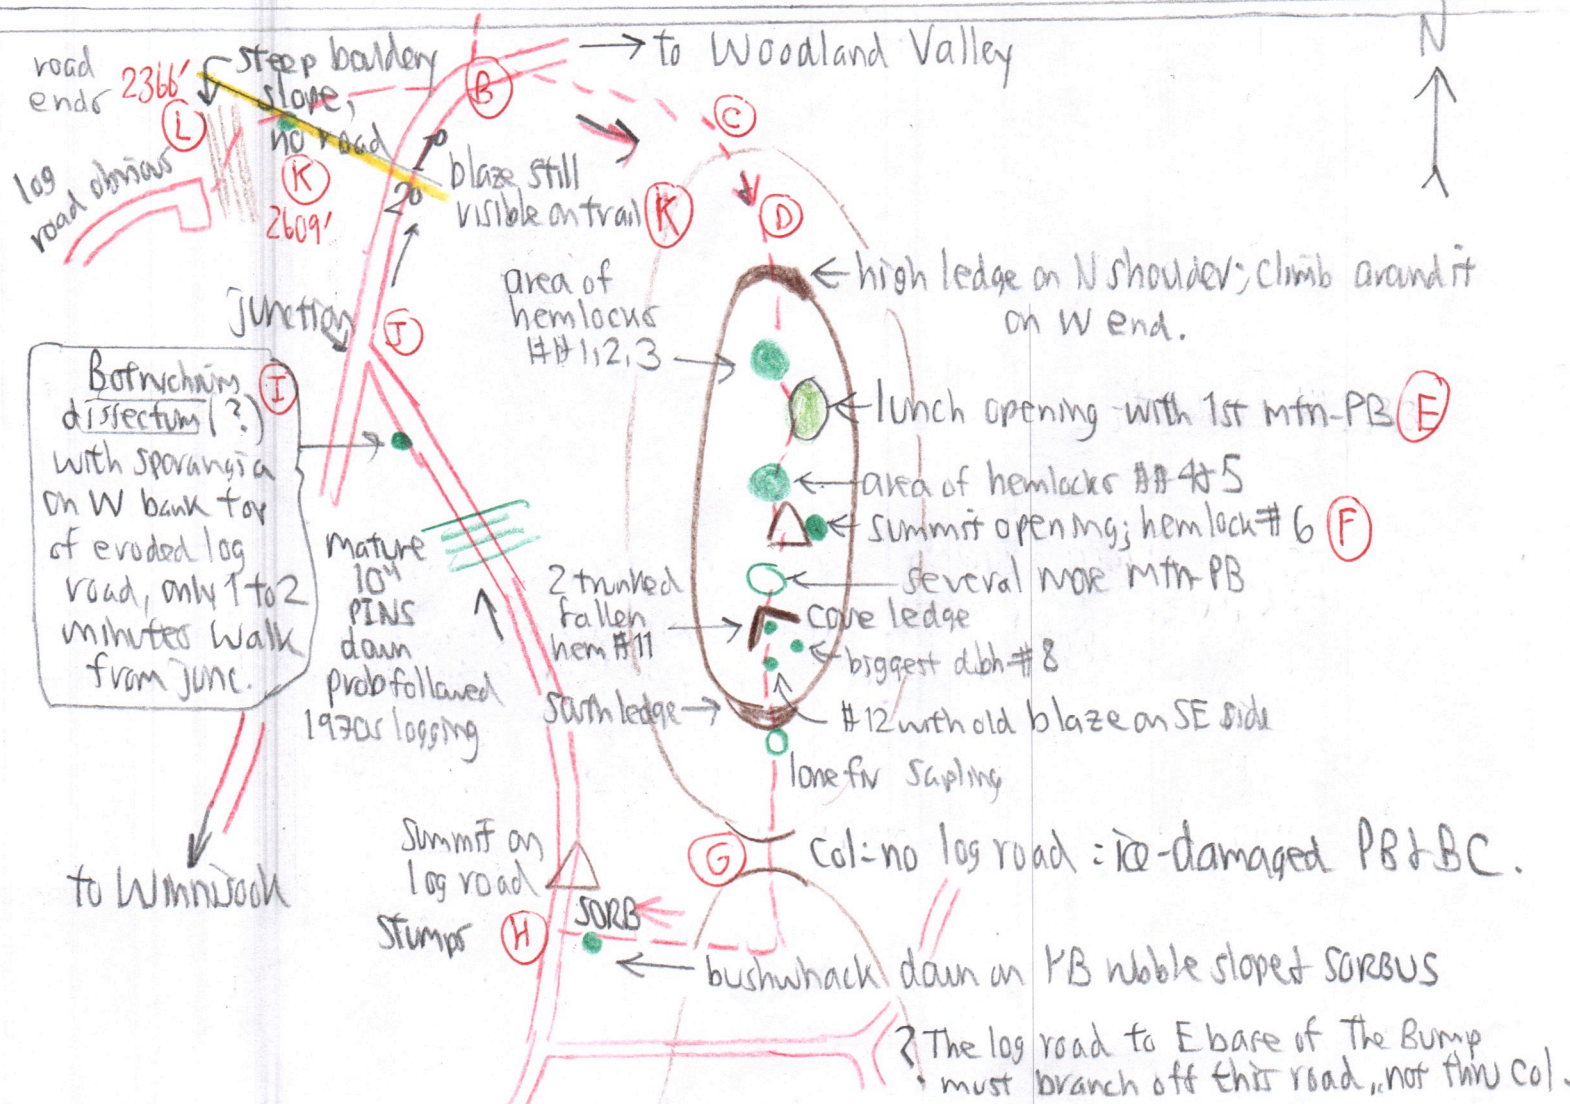 N
→ to Woodland Valley
road
ends
2366'
L
steep bouldery
slope,
no road
B
C
K
2609'
log
road obvious
1°
2°
blaze still
visible on trail
K
D
area of
hemlocks
##1,2,3
high ledge on N shoulder; climb around it
on W end.
junction
J
Botrychium
dissectum (?)
with sporangia
on W bank top
of eroded log
road, only 1 to 2
minutes walk
from junc.
I
lunch opening with 1st mtn-PB
E
area of hemlocks ##4&5
summit opening; hemlock #6
F
several more mtn-PB
mature
10"
PINS
down
prob followed
1970s logging
2 trunked
fallen
hem #11
cave ledge
biggest dbh #8
#12 with old blaze on SE side
south ledge
lone fir sapling
to Winnisook
summit on
log road
G
col=no log road = ice-damaged PB & BC.
stumps
H
SORB
bushwhack down on YB slope & SORBUS
? The log road to E base of The Bump
must branch off this road, not thru col.